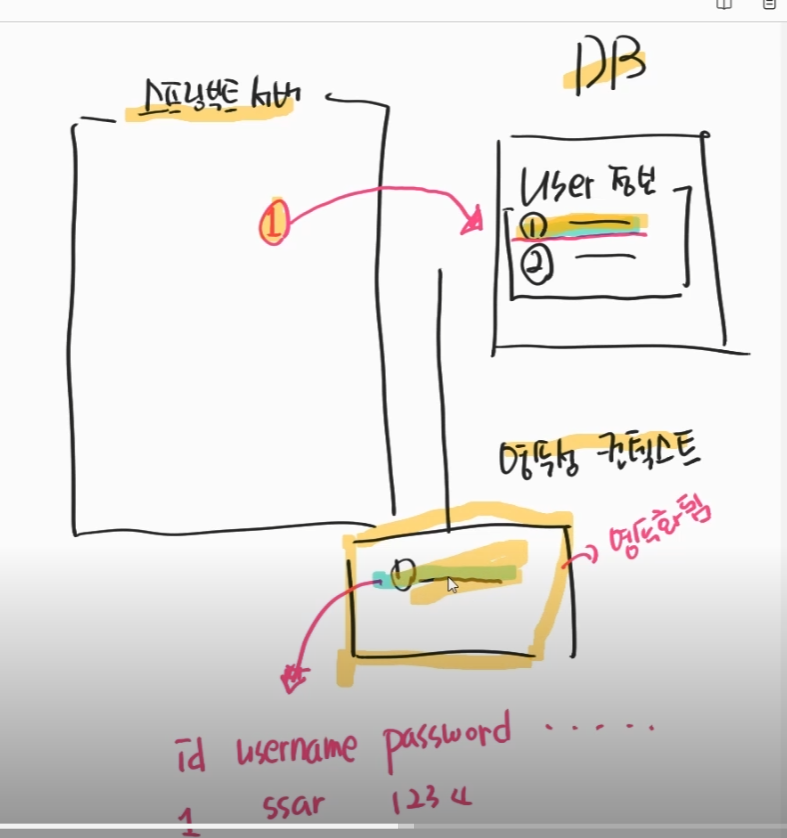 DB
스프링부트 서버
1
User 정보
① 
②
영속성 컨텍스트
영속화됨
①
id username password ......
1 ssar 1234